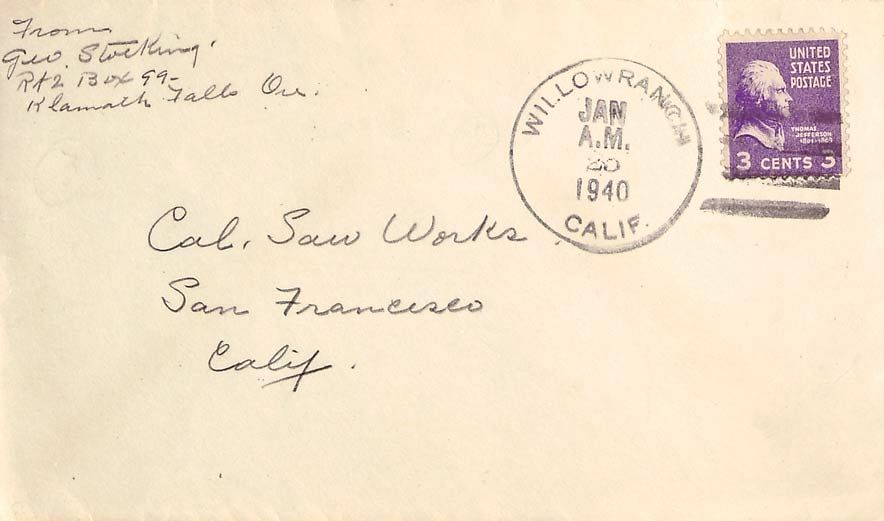 From
Geo. Stocking.
Rt 2 Box 99-
Klamath Falls Ore.
WILLOWRANCH
JAN
A.M.
20
1940
CALIF.
UNITED
STATES
POSTAGE
THOMAS
JEFFERSON
1801-1809
3 CENTS 3
Cal. Saw Works
San Francisco
Calif.